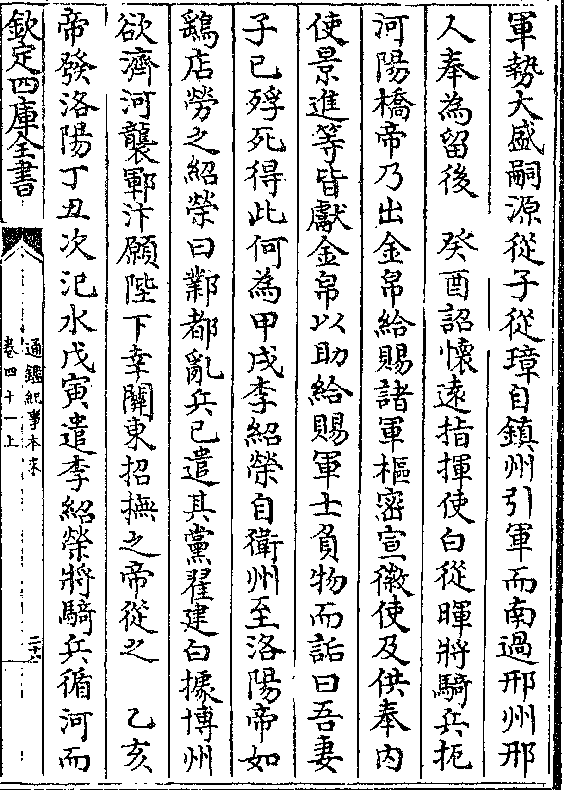 軍勢大盛嗣源從子從璋自鎮州引軍而南過邢州邢
人奉為留後　癸酉詔懷遠指揮使白從暉將騎兵扼
河陽橋帝乃出金帛給賜諸軍樞密宣徽使及供奉内
使景進等皆獻金帛以助給賜軍士負物而詬曰吾妻
子已殍死得此何為甲戌李紹榮自衛州至洛陽帝如
鷂店勞之紹榮曰鄴都亂兵已遣其黨翟建白據博州
欲濟河襲鄆汴願陛下幸關東招撫之帝從之　乙亥
帝發洛陽丁丑次汜水戊寅遣李紹榮將騎兵循河而
欽定四庫全書
通鑑紀事本末
卷四十一上